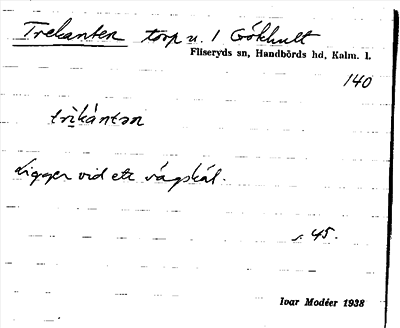 Trekanten torp u. 1 Gökhult
Fliseryds sn, Handbörds hd, Kalm. l.
140
trikántən
Ligger vid ett vägskäl.
s. 45.
Ivar Modéer 1938